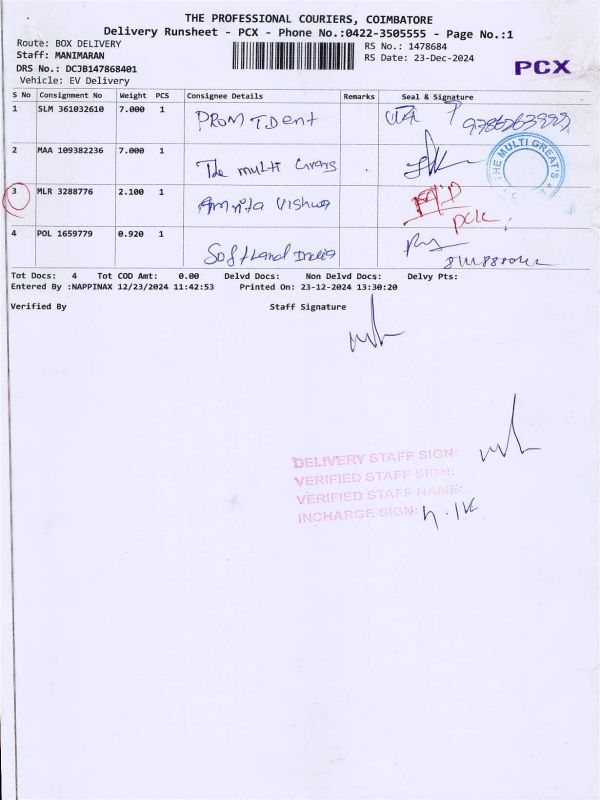 THE PROFESSIONAL COURIERS, COIMBATORE
Delivery Runsheet - PCX - Phone No.:0422-3505555 - Page No.:1
Route: BOX DELIVERY
RS No.: 1478684
Staff: MANIMARAN
RS Date: 23-Dec-2024
DRS No.: DCJB147868401
PCX
Vehicle: EV Delivery
S No Consignment No Weight PCS Consignee Details Remarks Seal & Signature
1 SLM 361032610 7.000 1 PROMTDent
2 MAA 109382236 7.000 1 The multi
THE MULTI GREAT'S
3 MLR 3288776 2.100 1 Amrita Vishwa
4 POL 1659779 0.920 1 Softland India
Tot Docs: 4 Tot COD Amt: 0.00 Delvd Docs: Non Delvd Docs: Delvy Pts:
Entered By :NAPPINAX 12/23/2024 11:42:53 Printed On: 23-12-2024 13:30:20
Verified By Staff Signature
DELIVERY STAFF SIGN:
VERIFIED STAFF SIGN:
VERIFIED STAFF NAME:
INCHARGE SIGN: